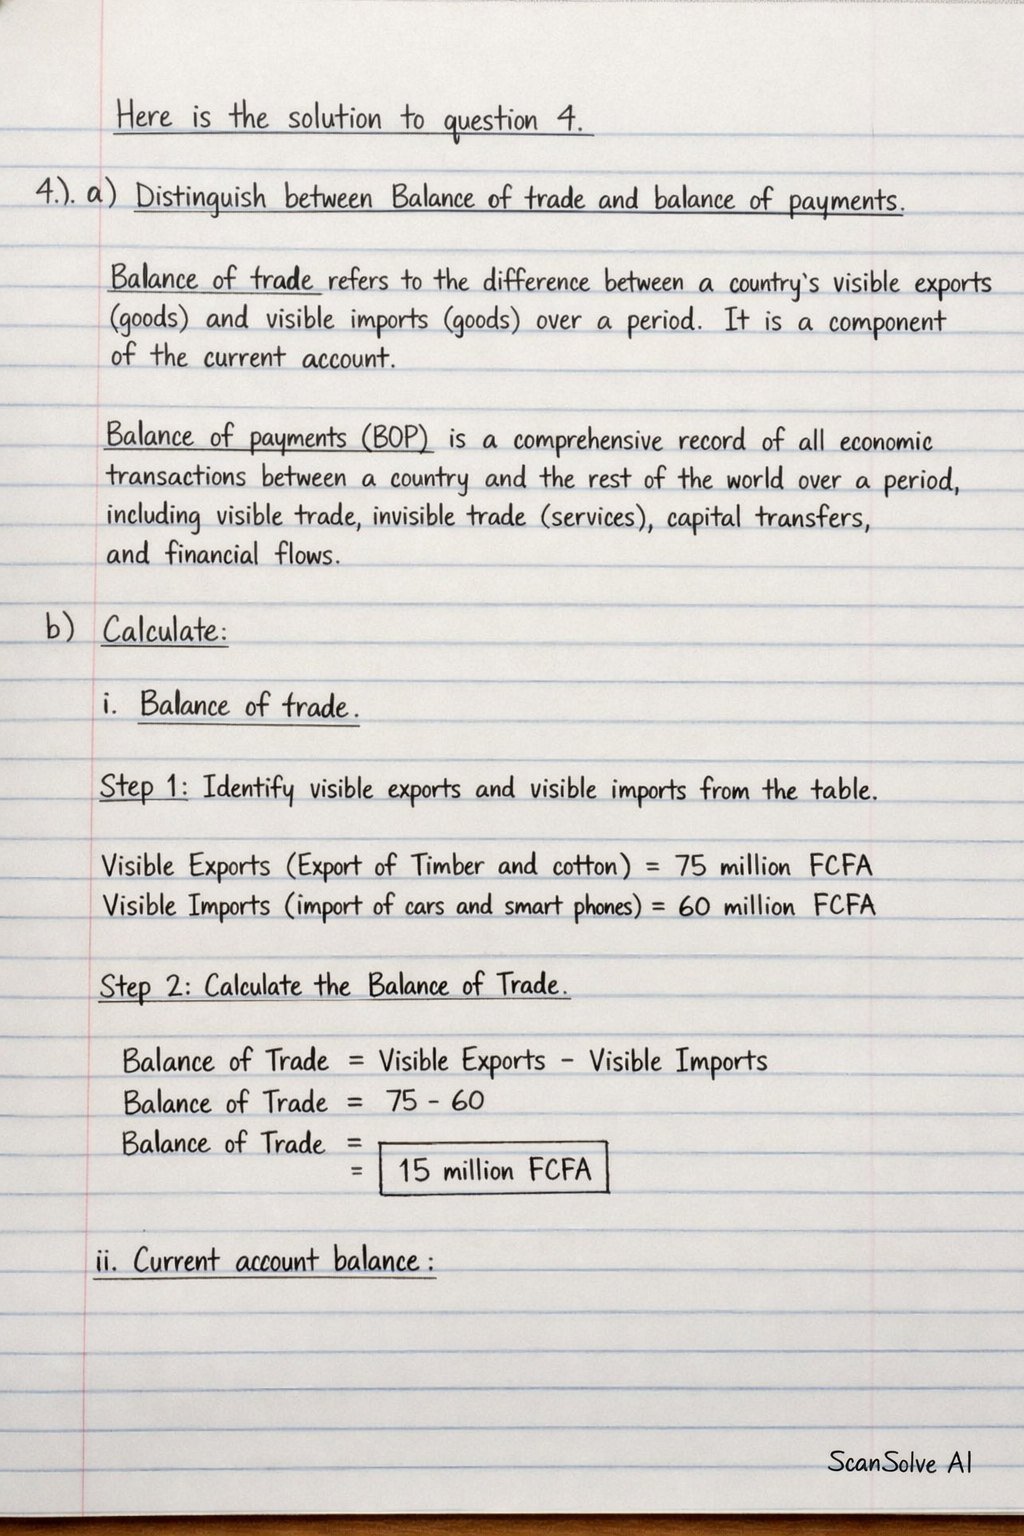 Here is the solution to question 4.
4.). a) Distinguish between Balance of trade and balance of payments.
Balance of trade refers to the difference between a country's visible exports
(goods) and visible imports (goods) over a period. It is a component
of the current account.
Balance of payments (BOP) is a comprehensive record of all economic
transactions between a country and the rest of the world over a period,
including visible trade, invisible trade (services), capital transfers,
and financial flows.
b) Calculate:
i. Balance of trade.
Step 1: Identify visible exports and visible imports from the table.
Visible Exports (Export of Timber and cotton) = 75 million FCFA
Visible Imports (import of cars and smart phones) = 60 million FCFA
Step 2: Calculate the Balance of Trade.
Balance of Trade = Visible Exports - Visible Imports
Balance of Trade = 75 - 60
Balance of Trade =
= 15 million FCFA
ii. Current account balance:
ScanSolve AI